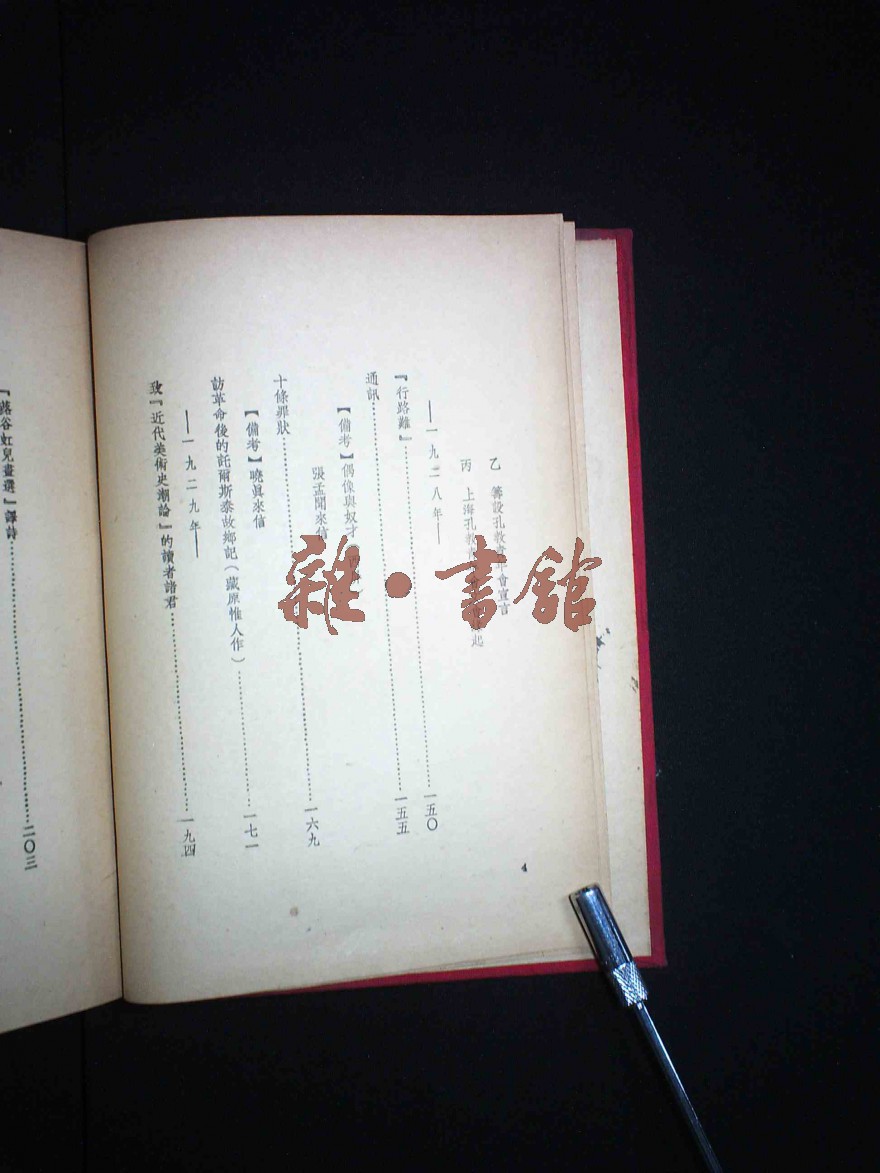 乙 籌設孔教青年會宣言
丙 上海孔教青年會
起
——一九二八年——
『行路難』……一五〇
通訊……一五五
【備考】偶像與奴才
張孟聞來信
十條罪狀……一六九
【備考】曉眞來信
訪革命後的託爾斯泰故鄉記（藏原惟人作）……一七一
——一九二九年——
致『近代美術史潮論』的讀者諸君……一九四
『蕗谷虹兒畫選』譯詩……二〇三
4
雜·書館